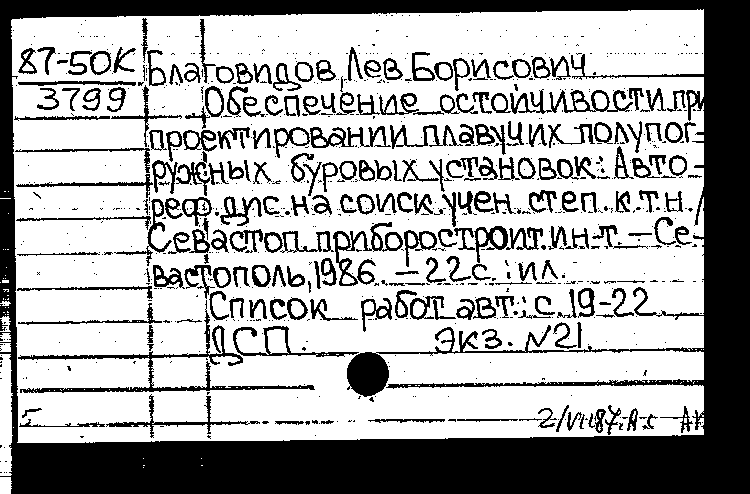 87-50К Благовидов, Лев Борисович.
3799 Обеспечение остойчивости при
проектировании плавучих полупог-
ружных буровых установок: Авто-
реф. дис. на соиск. учен. степ. к.т.н. /
Севастоп. приборостроит. ин-т. – Се-
вастополь, 1986. – 22 с. : ил.
Список работ авт.: с. 19-22.
ДСП. экз. N21.
5 2/VI-87.